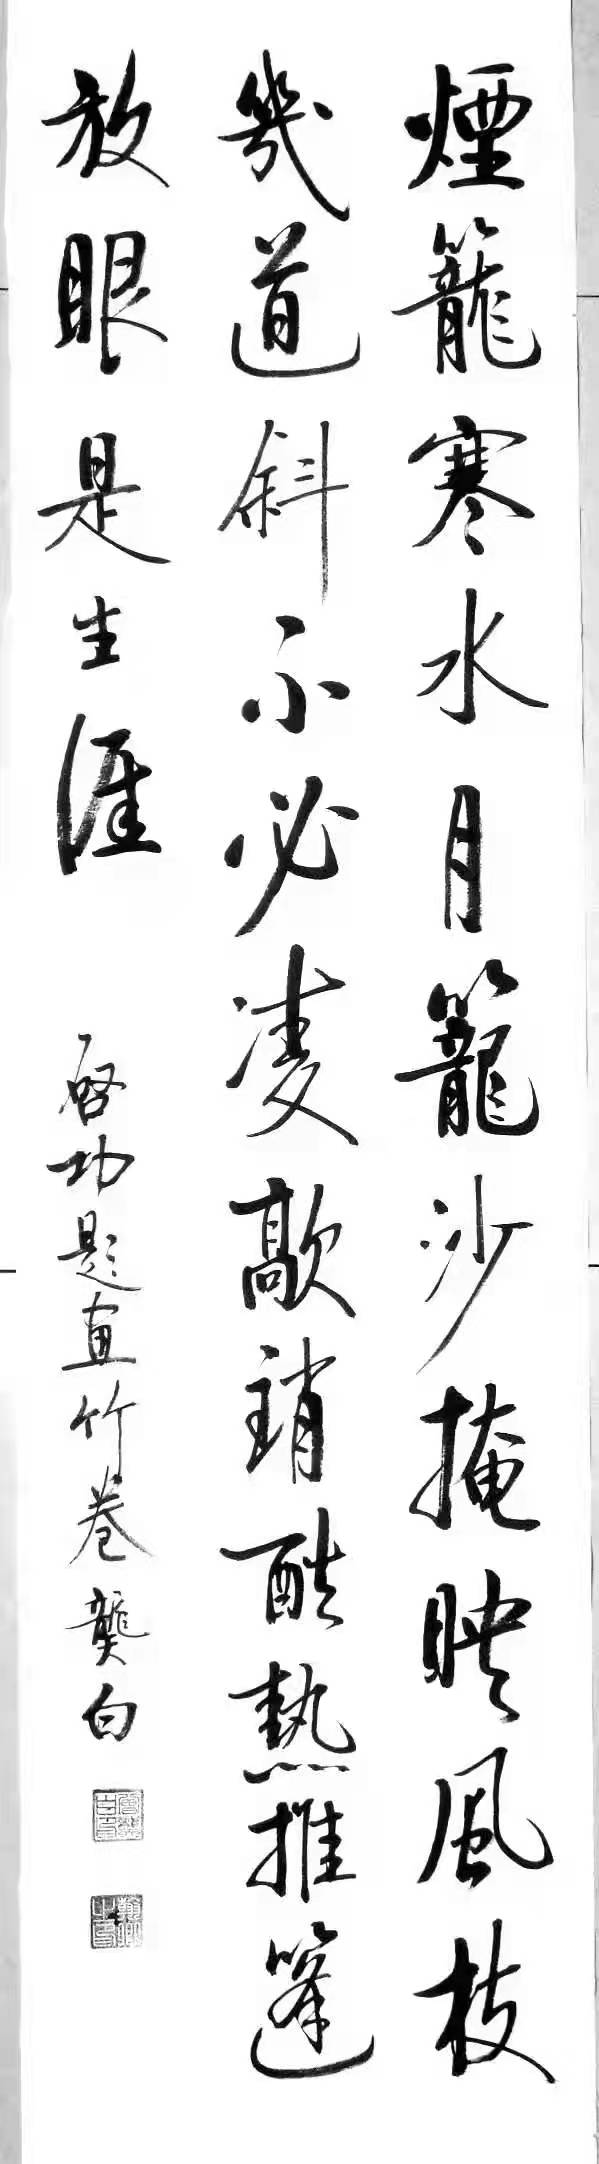 煙籠寒水月籠沙掩映風枝
幾道斜不必凌歊銷酷熱推篷
放眼是生涯
啓功題畫竹卷龔白